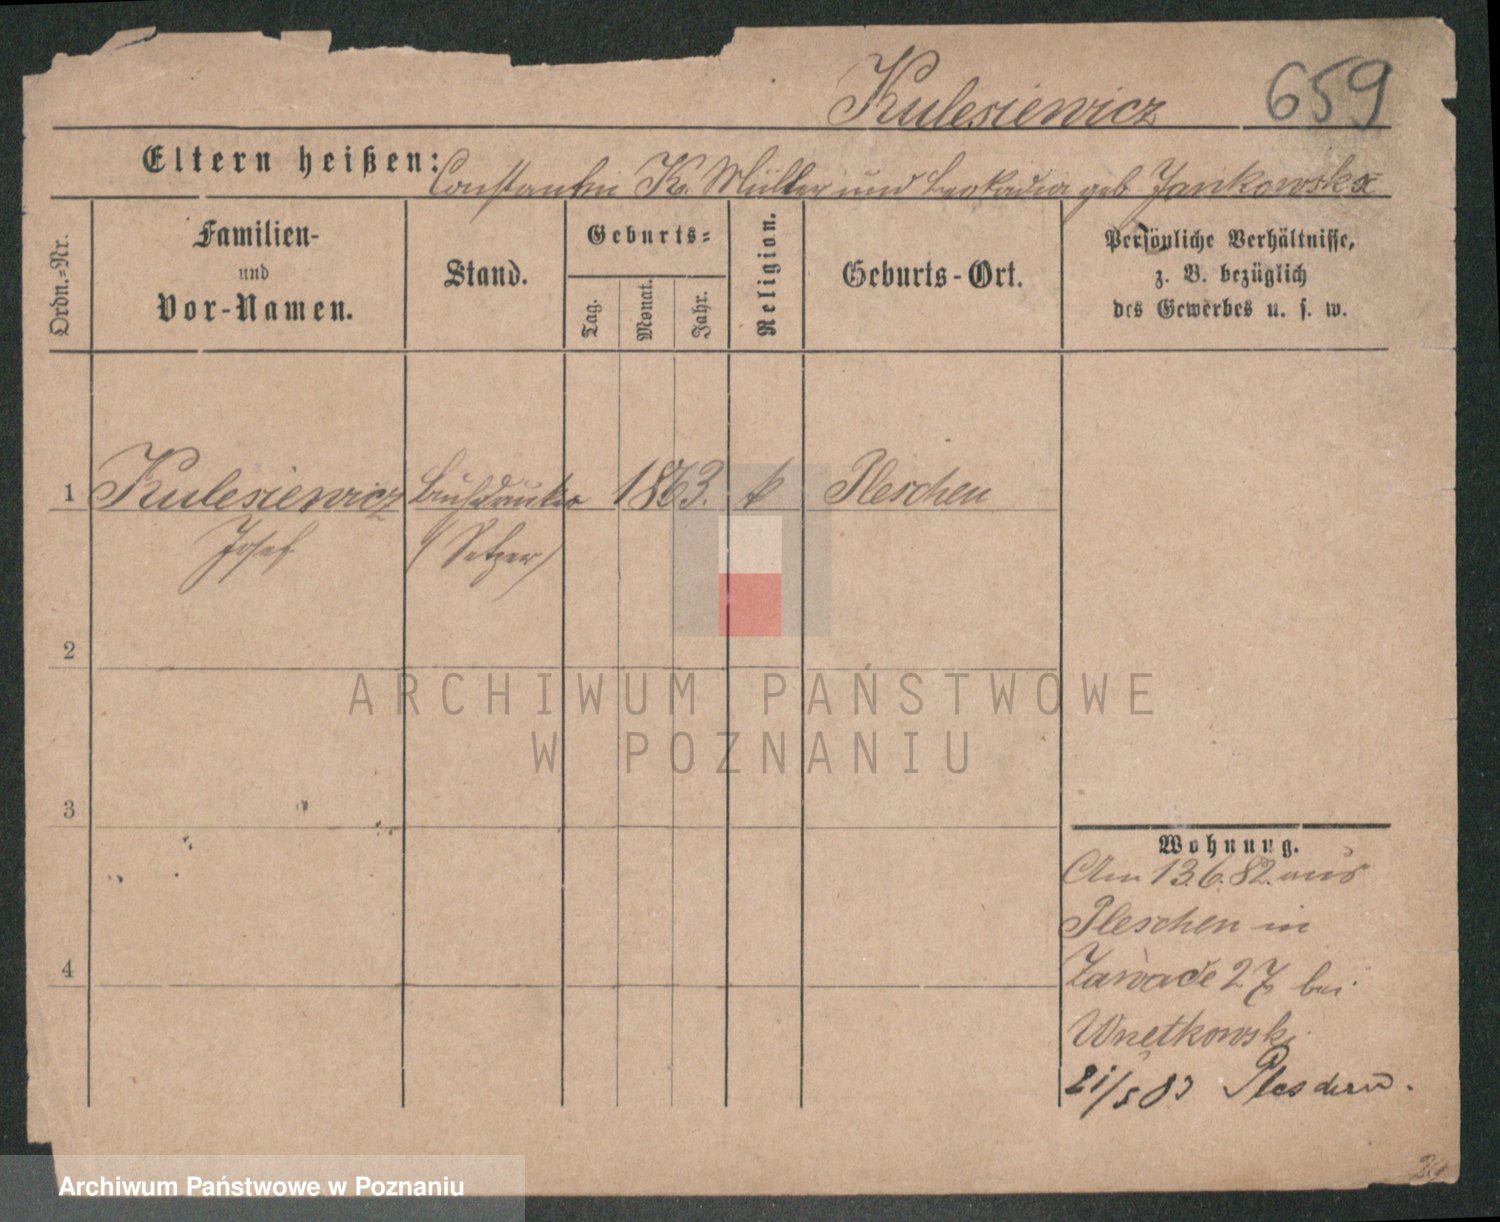 Kulesiewicz 659
Eltern heißen: Constantin K. Müller und Leokadia geb Jankowska
Ordn.=Nr.
Familien-
und
Vor-Namen.
Stand.
Geburts=
Tag.
Monat.
Jahr.
Religion.
Geburts-Ort.
Persönliche Verhältnisse,
z. B. bezüglich
des Gewerbes u. s. w.
1 Kulesiewicz Buchdrucker 1863. k Pleschen
Josef (Setzer)
2
ARCHIWUM PAŃSTWOWE
W POZNANIU
3
Wohnung.
Am 13.6.82. aus
Pleschen in
4
Zawade 27 bei
Wnętkowski
21/5 83 Pleschen.
Archiwum Państwowe w Poznaniu